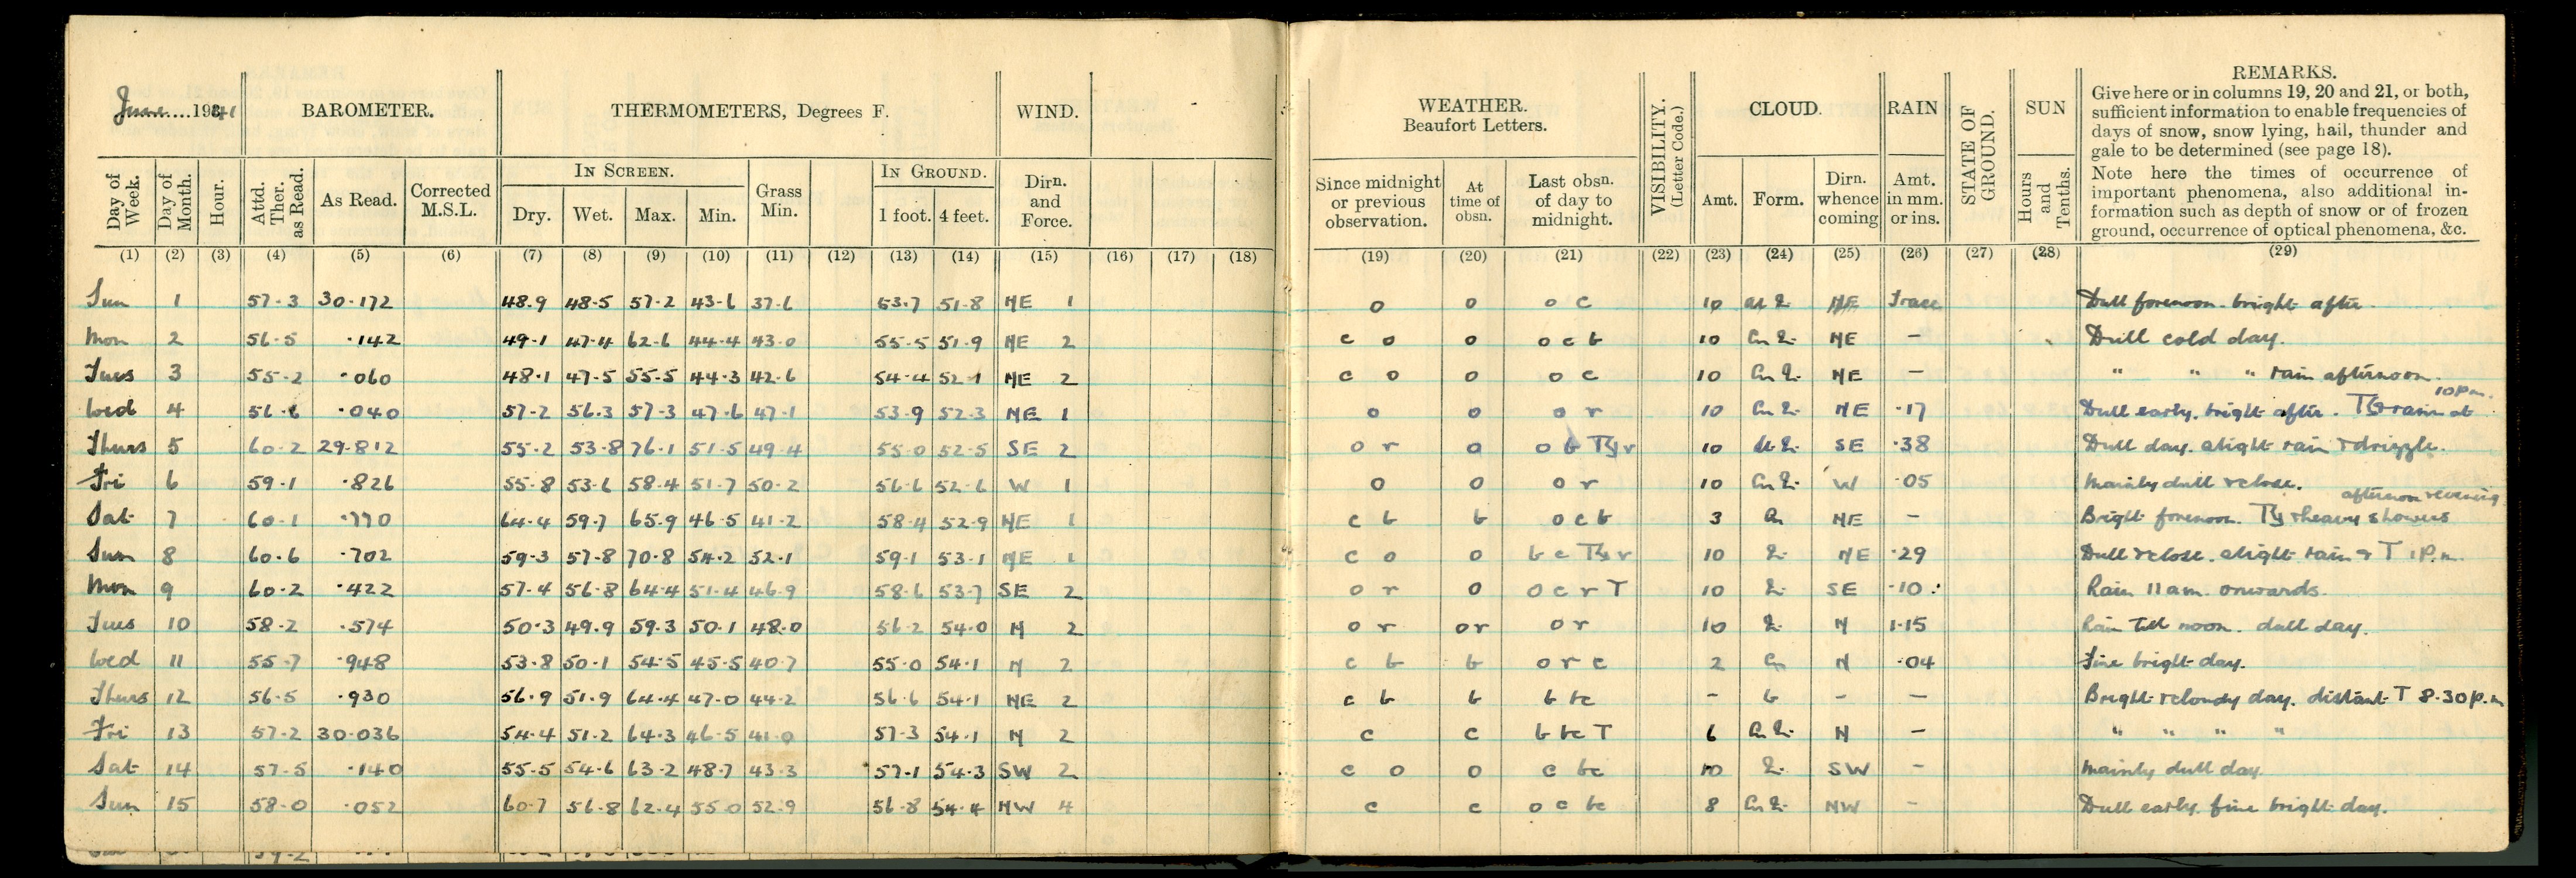 June....1941
BAROMETER.
THERMOMETERS, Degrees F.
WIND.
WEATHER.
Beaufort Letters.
VISIBILITY.
(Letter Code.)
CLOUD.
RAIN
STATE OF GROUND.
SUN
REMARKS.
Give here or in columns 19, 20 and 21, or both,
sufficient information to enable frequencies of
days of snow, snow lying, hail, thunder and
gale to be determined (see page 18).
Note here the times of occurrence of
important phenomena, also additional in-
formation such as depth of snow or of frozen
ground, occurrence of optical phenomena, &c.
Day of Week. Day of Month. Hour. Attd. Ther. as Read. As Read. Corrected M.S.L.
IN SCREEN. Dry. Wet. Max. Min. Grass Min. IN GROUND. 1 foot. 4 feet. Dirn. and Force.
Since midnight or previous observation. At time of obsn. Last obsn. of day to midnight. Amt. Form. Dirn. whence coming Amt. in mm. or ins. Hours and Tenths.
(1) (2) (3) (4) (5) (6) (7) (8) (9) (10) (11) (12) (13) (14) (15) (16) (17) (18) (19) (20) (21) (22) (23) (24) (25) (26) (27) (28) (29)
Sun 1 57.3 30.172 48.9 48.5 57.2 43.6 37.6 53.7 51.8 NE 1 o o o c 10 NE Trace Dull forenoon. bright after.
Mon 2 56.5 .142 49.1 47.4 62.6 44.4 43.0 55.5 51.9 NE 2 c o o o c b 10 NE - Dull cold day.
Tues 3 55.2 .060 48.1 47.5 55.5 44.3 42.6 54.4 52.1 NE 2 c o o o c 10 NE - " " " rain afternoon.
Wed 4 56.6 .040 57.2 56.3 57.3 47.6 47.1 53.9 52.3 NE 1 o o o r 10 NE .17 Dull early. bright after. rain at 10 p.m.
Thurs 5 60.2 29.812 55.2 53.8 76.1 51.5 49.4 55.0 52.5 SE 2 o r o o b r 10 SE .38 Dull day. slight rain & drizzle.
Fri 6 59.1 .826 55.8 53.6 58.4 51.7 50.2 56.6 52.6 W 1 o o o r 10 W .05 Mainly dull & close.
Sat 7 60.1 .770 64.4 59.7 65.9 46.5 41.2 58.4 52.9 NE 1 c b b o c b 3 NE - Bright forenoon. & heavy showers afternoon & evening
Sun 8 60.6 .702 59.3 57.8 70.8 54.2 52.1 59.1 53.1 NE 1 c o o b c r 10 NE .29 Dull & close. slight rain & T 1 P.m.
Mon 9 60.2 .422 57.4 56.8 64.4 51.4 46.9 58.6 53.7 SE 2 o r o o c r T 10 SE .10 Rain 11 am. onwards.
Tues 10 58.2 .574 50.3 49.9 59.3 50.1 48.0 56.2 54.0 N 2 o r o r o r 10 N 1.15 Rain till noon. dull day.
Wed 11 55.7 .948 53.8 50.1 54.5 45.5 40.7 55.0 54.1 N 2 c b b o r c 2 N .04 Fine bright day.
Thurs 12 56.5 .930 56.9 51.9 64.4 47.0 44.2 56.6 54.1 NE 2 c b b b bc - b - - Bright & cloudy day. distant T 8.30 p.m
Fri 13 57.2 30.036 54.4 51.2 64.3 46.5 41.0 57.3 54.1 N 2 c c b bc T 6 N - " " " "
Sat 14 57.5 .140 55.5 54.6 63.2 48.7 43.3 57.1 54.3 SW 2 c o o c bc 10 SW - Mainly dull day.
Sun 15 58.0 .052 60.7 56.8 62.4 55.0 52.9 56.8 54.4 NW 4 c c o c bc 8 NW - Dull early. fine bright day.